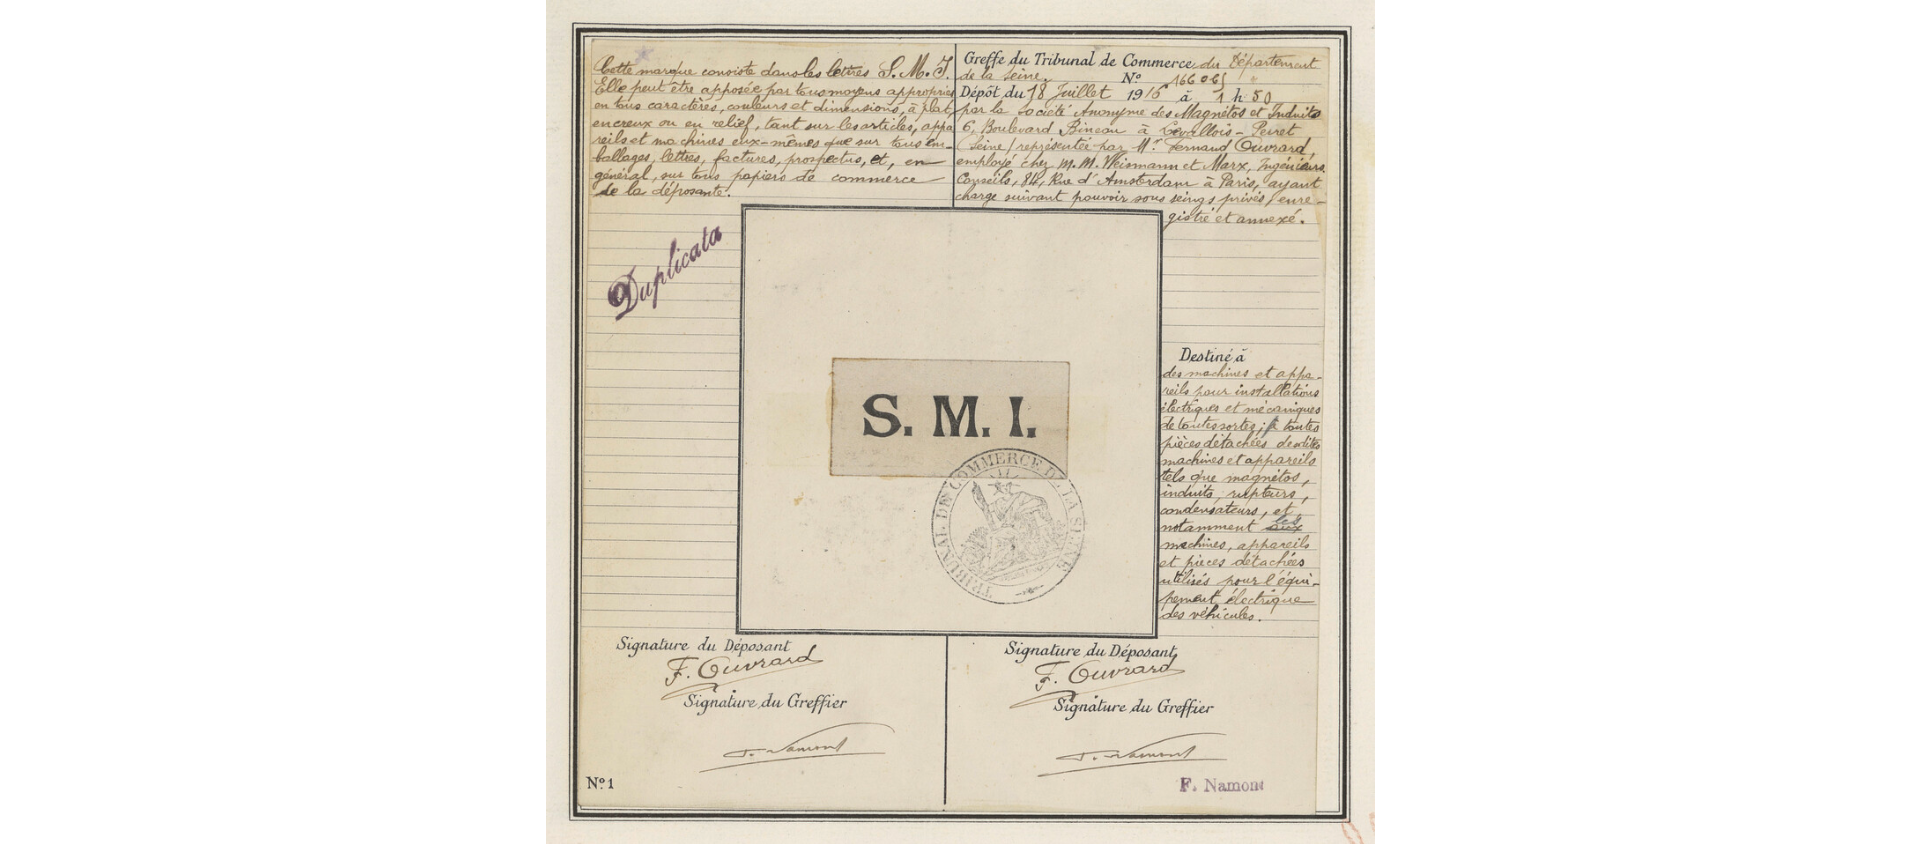 Cette marque consiste dans les lettres S. M. I.
Elle peut être apposée par tous moyens appropriés
en tous caractères, couleurs et dimensions, à plat,
en creux ou en relief, tant sur les articles, appa
reils et machines eux-mêmes que sur tous em-
ballages, lettres, factures, prospectus, et, en
général, sur tous papiers de commerce
de la déposante.
Greffe du Tribunal de Commerce du Département
de la Seine. N° 16606
Dépôt du 18 Juillet 1916 à 1 h 50
par la Société Anonyme des Magnétos et Induits
6, Boulevard Bineau à Levallois-Perret
(Seine) représentée par Mr Fernand Ouvrard,
employé chez M.M. Weismann et Marx, Ingénieurs
Conseils, 84, Rue d'Amsterdam à Paris, ayant
charge suivant pouvoir sous seings privés, enre-
gistré et annexé.
Duplicata
S. M. I.
TRIBUNAL DE COMMERCE DE LA SEINE
Destiné à
des machines et appa-
reils pour installations
électriques et mécaniques
de toutes sortes; à toutes
pièces détachées desdites
machines et appareils
tels que magnétos,
induits, rupteurs,
condensateurs, et
notamment les
machines, appareils
et pièces détachées
utilisés pour l'équi-
pement électrique
des véhicules.
Signature du Déposant
F. Ouvrard
Signature du Greffier
F. Namont
N° 1
Signature du Déposant
F. Ouvrard
Signature du Greffier
F. Namont
F. Namont